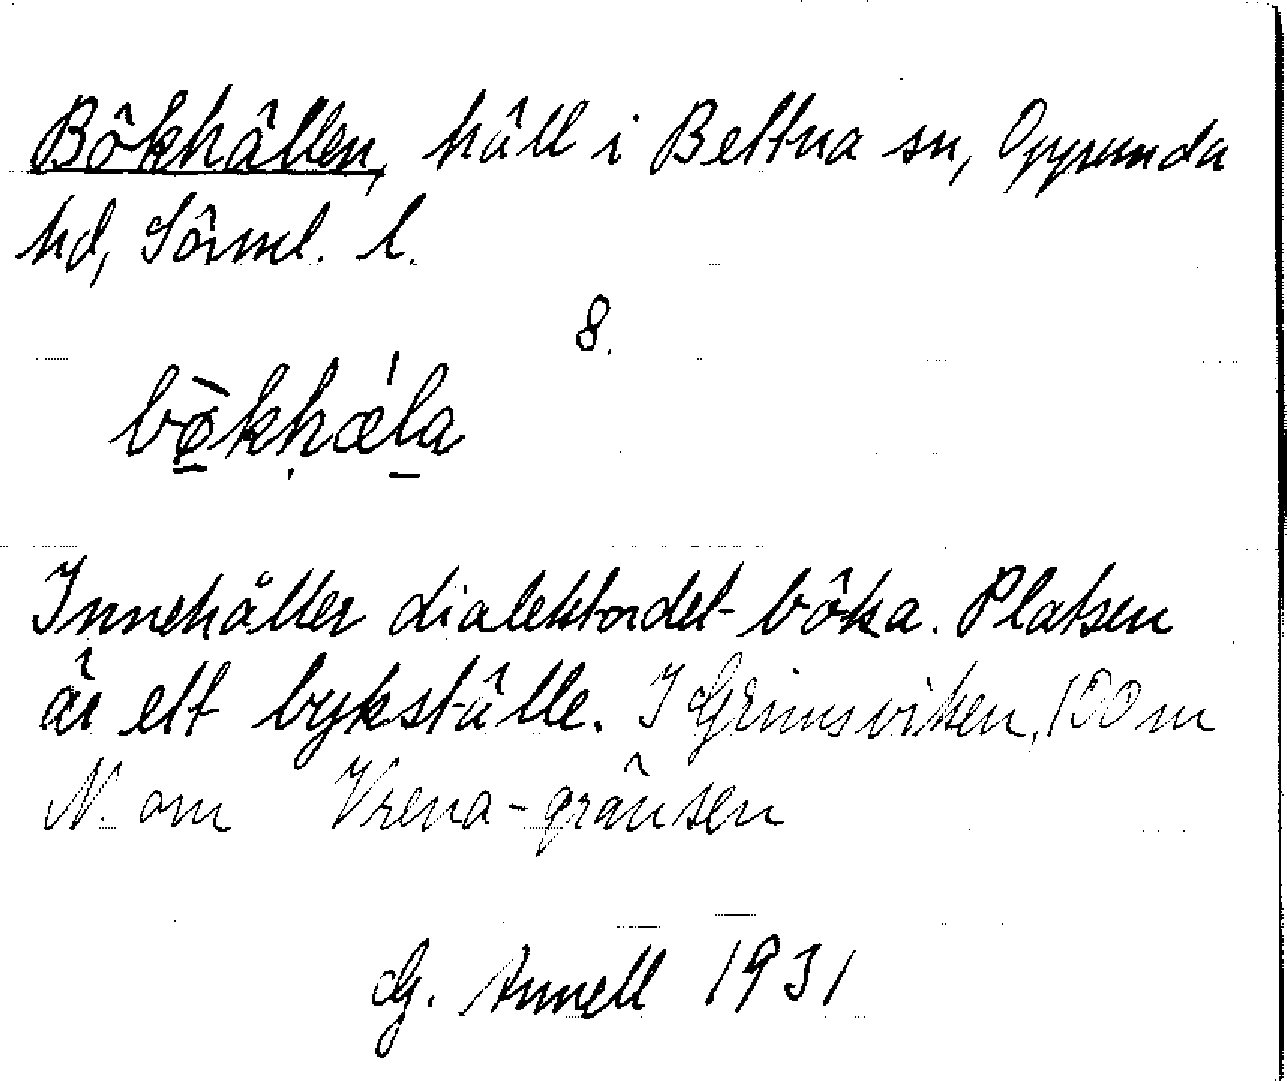 Bökhällen, häll i Bettna sn, Oppunda
hd, Sörml. l.
8.
bø̀khæ̍la
Innehåller dialektordet böka. Platsen
är ett bykställe. I Grinusviken, 100 m
N. om Vrena-gränsen
G. Annell 1931